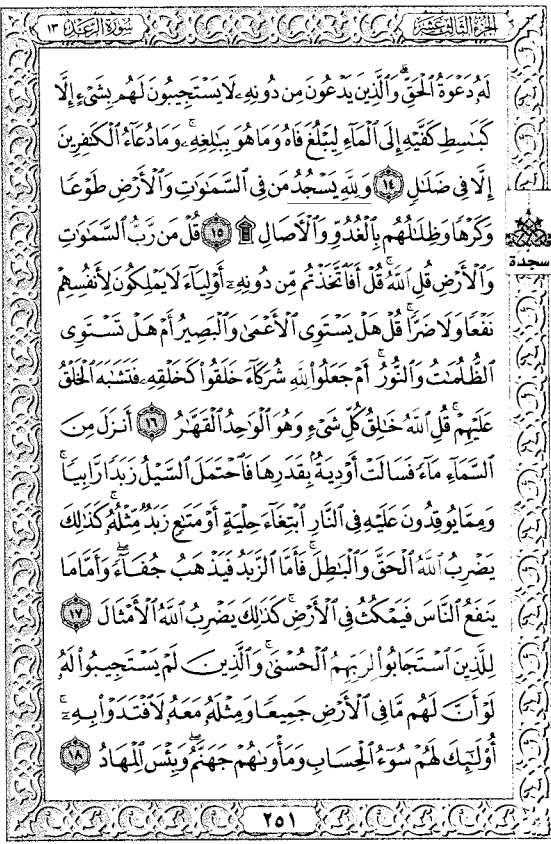 الجزء الثالث عشر
سورة الرعد ١٣
لَهُۥ دَعْوَةُ ٱلْحَقِّ ۖ وَٱلَّذِينَ يَدْعُونَ مِن دُونِهِۦ لَا يَسْتَجِيبُونَ لَهُم بِشَىْءٍ إِلَّا
كَبَـٰسِطِ كَفَّيْهِ إِلَى ٱلْمَآءِ لِيَبْلُغَ فَاهُ وَمَا هُوَ بِبَـٰلِغِهِۦ ۚ وَمَا دُعَآءُ ٱلْكَـٰفِرِينَ
إِلَّا فِى ضَلَـٰلٍ ١٤ وَلِلَّهِ يَسْجُدُ مَن فِى ٱلسَّمَـٰوَٰتِ وَٱلْأَرْضِ طَوْعًا
وَكَرْهًا وَظِلَـٰلُهُم بِٱلْغُدُوِّ وَٱلْـَٔاصَالِ ۩ ١٥ قُلْ مَن رَّبُّ ٱلسَّمَـٰوَٰتِ
وَٱلْأَرْضِ قُلِ ٱللَّهُ ۚ قُلْ أَفَٱتَّخَذْتُم مِّن دُونِهِۦٓ أَوْلِيَآءَ لَا يَمْلِكُونَ لِأَنفُسِهِمْ
سجدة
نَفْعًا وَلَا ضَرًّا ۚ قُلْ هَلْ يَسْتَوِى ٱلْأَعْمَىٰ وَٱلْبَصِيرُ أَمْ هَلْ تَسْتَوِى
ٱلظُّلُمَـٰتُ وَٱلنُّورُ ۗ أَمْ جَعَلُوا۟ لِلَّهِ شُرَكَآءَ خَلَقُوا۟ كَخَلْقِهِۦ فَتَشَـٰبَهَ ٱلْخَلْقُ
عَلَيْهِمْ ۚ قُلِ ٱللَّهُ خَـٰلِقُ كُلِّ شَىْءٍ وَهُوَ ٱلْوَٰحِدُ ٱلْقَهَّـٰرُ ١٦ أَنزَلَ مِنَ
ٱلسَّمَآءِ مَآءً فَسَالَتْ أَوْدِيَةٌۢ بِقَدَرِهَا فَٱحْتَمَلَ ٱلسَّيْلُ زَبَدًا رَّابِيًا ۚ
وَمِمَّا يُوقِدُونَ عَلَيْهِ فِى ٱلنَّارِ ٱبْتِغَآءَ حِلْيَةٍ أَوْ مَتَـٰعٍ زَبَدٌ مِّثْلُهُۥ ۚ كَذَٰلِكَ
يَضْرِبُ ٱللَّهُ ٱلْحَقَّ وَٱلْبَـٰطِلَ ۚ فَأَمَّا ٱلزَّبَدُ فَيَذْهَبُ جُفَآءً ۖ وَأَمَّا مَا
يَنفَعُ ٱلنَّاسَ فَيَمْكُثُ فِى ٱلْأَرْضِ ۚ كَذَٰلِكَ يَضْرِبُ ٱللَّهُ ٱلْأَمْثَالَ ١٧
لِلَّذِينَ ٱسْتَجَابُوا۟ لِرَبِّهِمُ ٱلْحُسْنَىٰ ۚ وَٱلَّذِينَ لَمْ يَسْتَجِيبُوا۟ لَهُۥ
لَوْ أَنَّ لَهُم مَّا فِى ٱلْأَرْضِ جَمِيعًا وَمِثْلَهُۥ مَعَهُۥ لَٱفْتَدَوْا۟ بِهِۦٓ ۚ
أُو۟لَـٰٓئِكَ لَهُمْ سُوٓءُ ٱلْحِسَابِ وَمَأْوَىٰهُمْ جَهَنَّمُ ۖ وَبِئْسَ ٱلْمِهَادُ ١٨
٢٥١